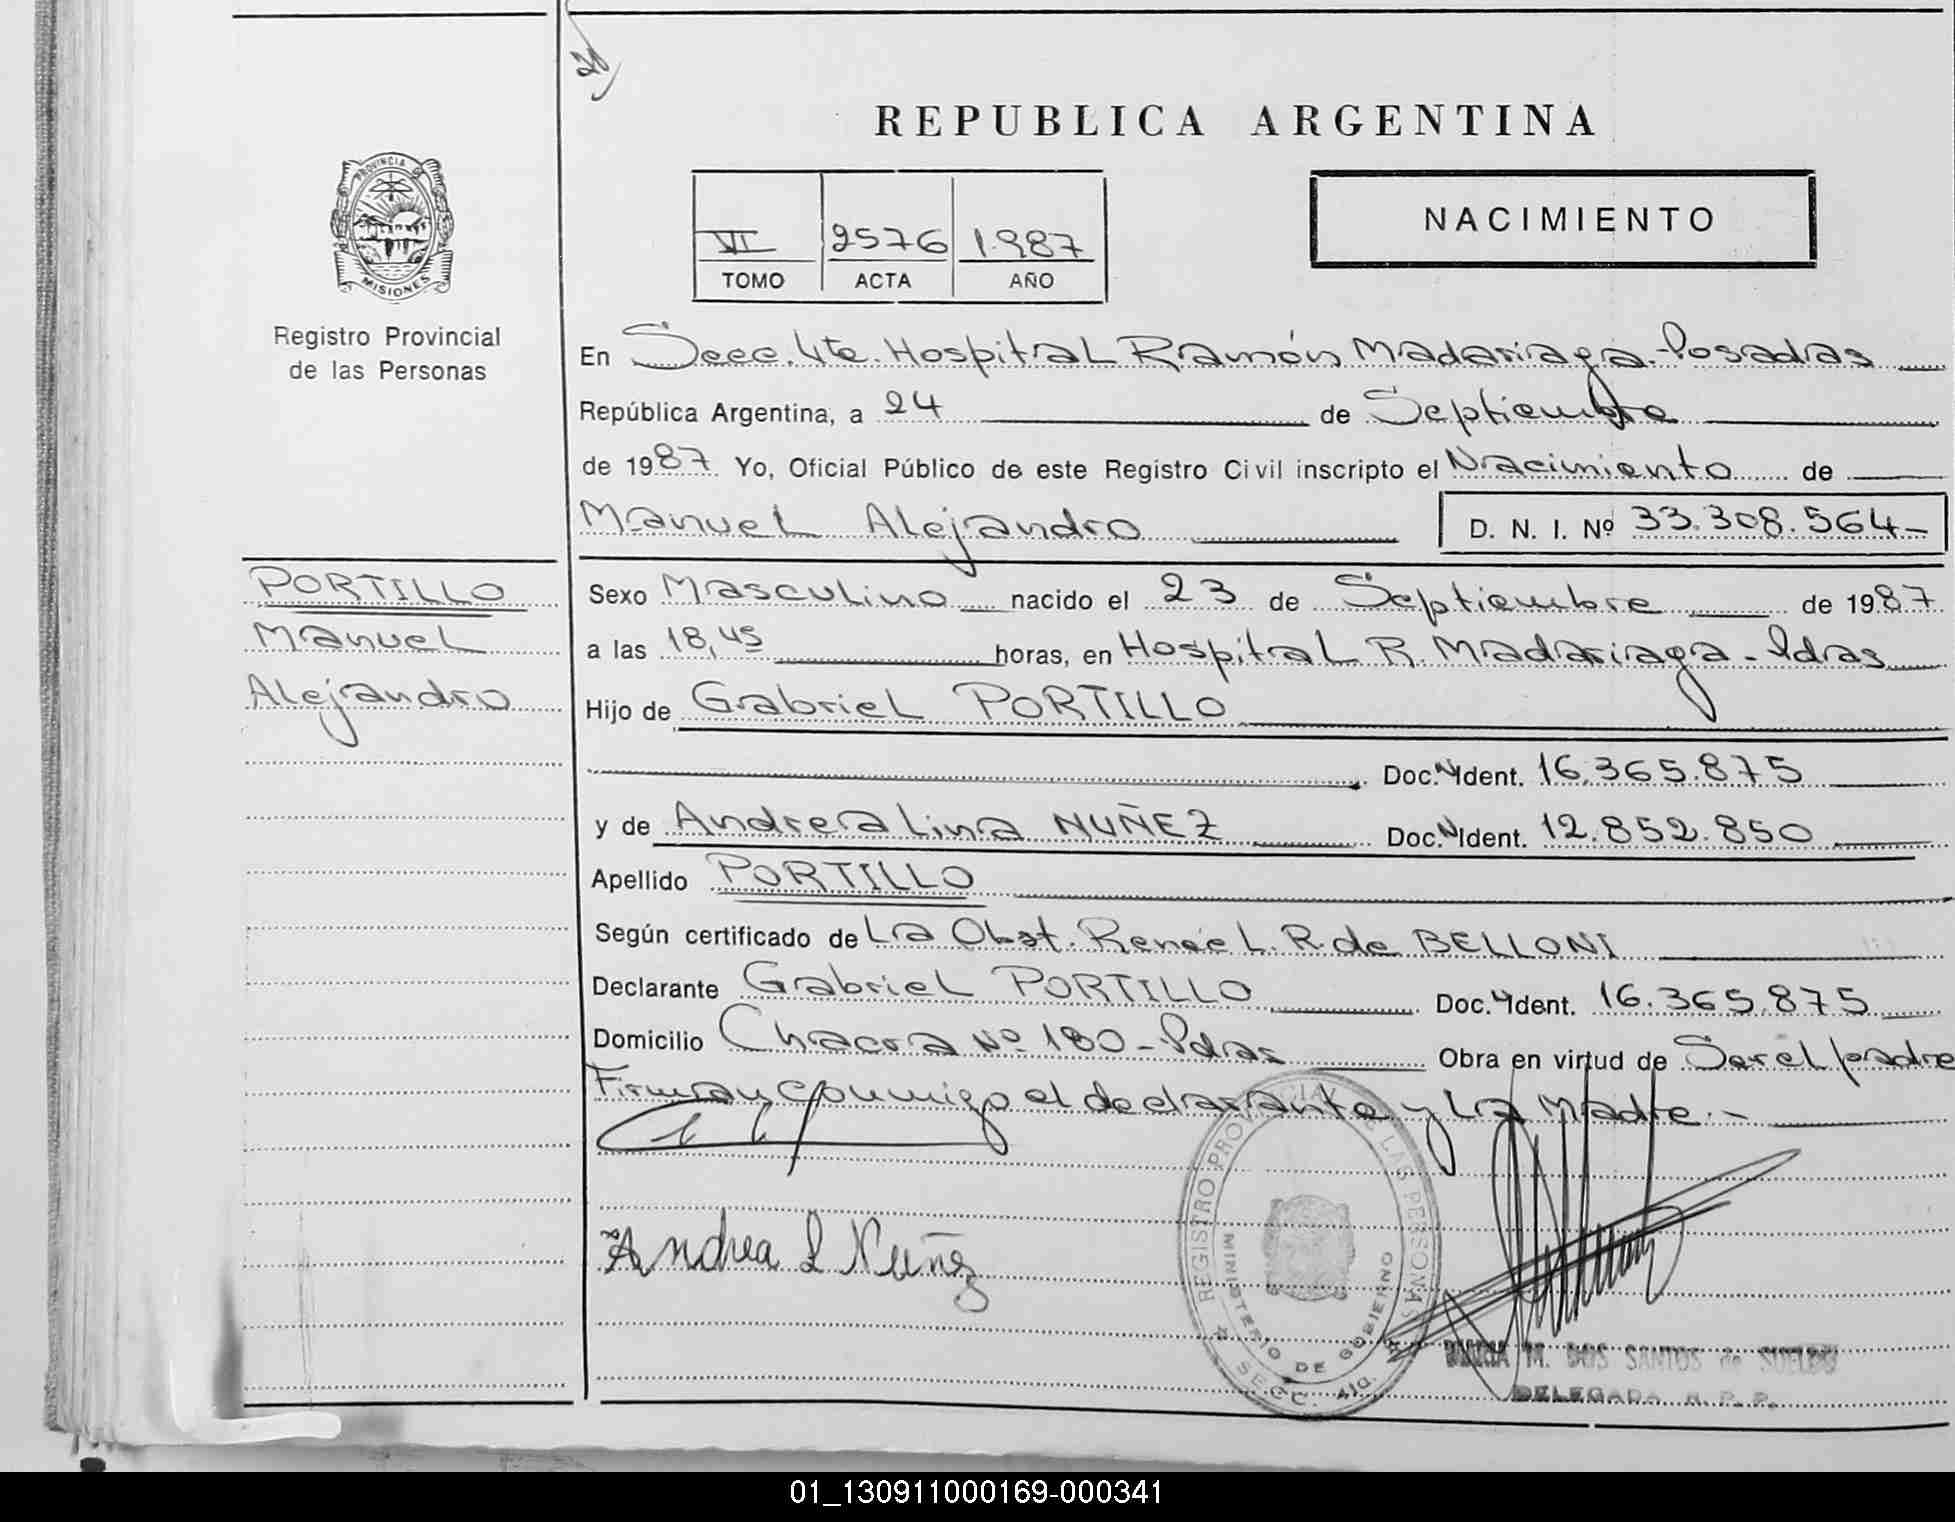 REPUBLICA ARGENTINA
PROVINCIA
MISIONES
Registro Provincial
de las Personas
VI 2576 1987
TOMO ACTA AÑO
NACIMIENTO
En Secc. 4ta. Hospital Ramón Madariaga - Posadas
República Argentina, a 24 de Septiembre
de 1987 Yo, Oficial Público de este Registro Civil inscripto el Nacimiento de
Manuel Alejandro D. N. I. Nº 33.308.564-
PORTILLO
Manuel
Alejandro
Sexo Masculino nacido el 23 de Septiembre de 1987
a las 18,45 horas, en Hospital R. Madariaga - Pdas
Hijo de Gabriel PORTILLO
Doc. N Ident. 16.365.875
y de Andrea Lina NUÑEZ Doc. N Ident. 12.852.850
Apellido PORTILLO
Según certificado de La Obst. Renée L. R. de BELLONI
Declarante Gabriel PORTILLO Doc. N Ident. 16.365.875
Domicilio Chacra Nº 180 - Pdas Obra en virtud de Ser el padre
Firman conmigo el declarante y La Madre.-
Andrea L Nuñez
REGISTRO PROVINCIAL DE LAS PERSONAS
MINISTERIO DE GOBIERNO
SECC. 4ta.
M. DOS SANTOS de SUELDO
DELEGADA R. P. P.
01_130911000169-000341